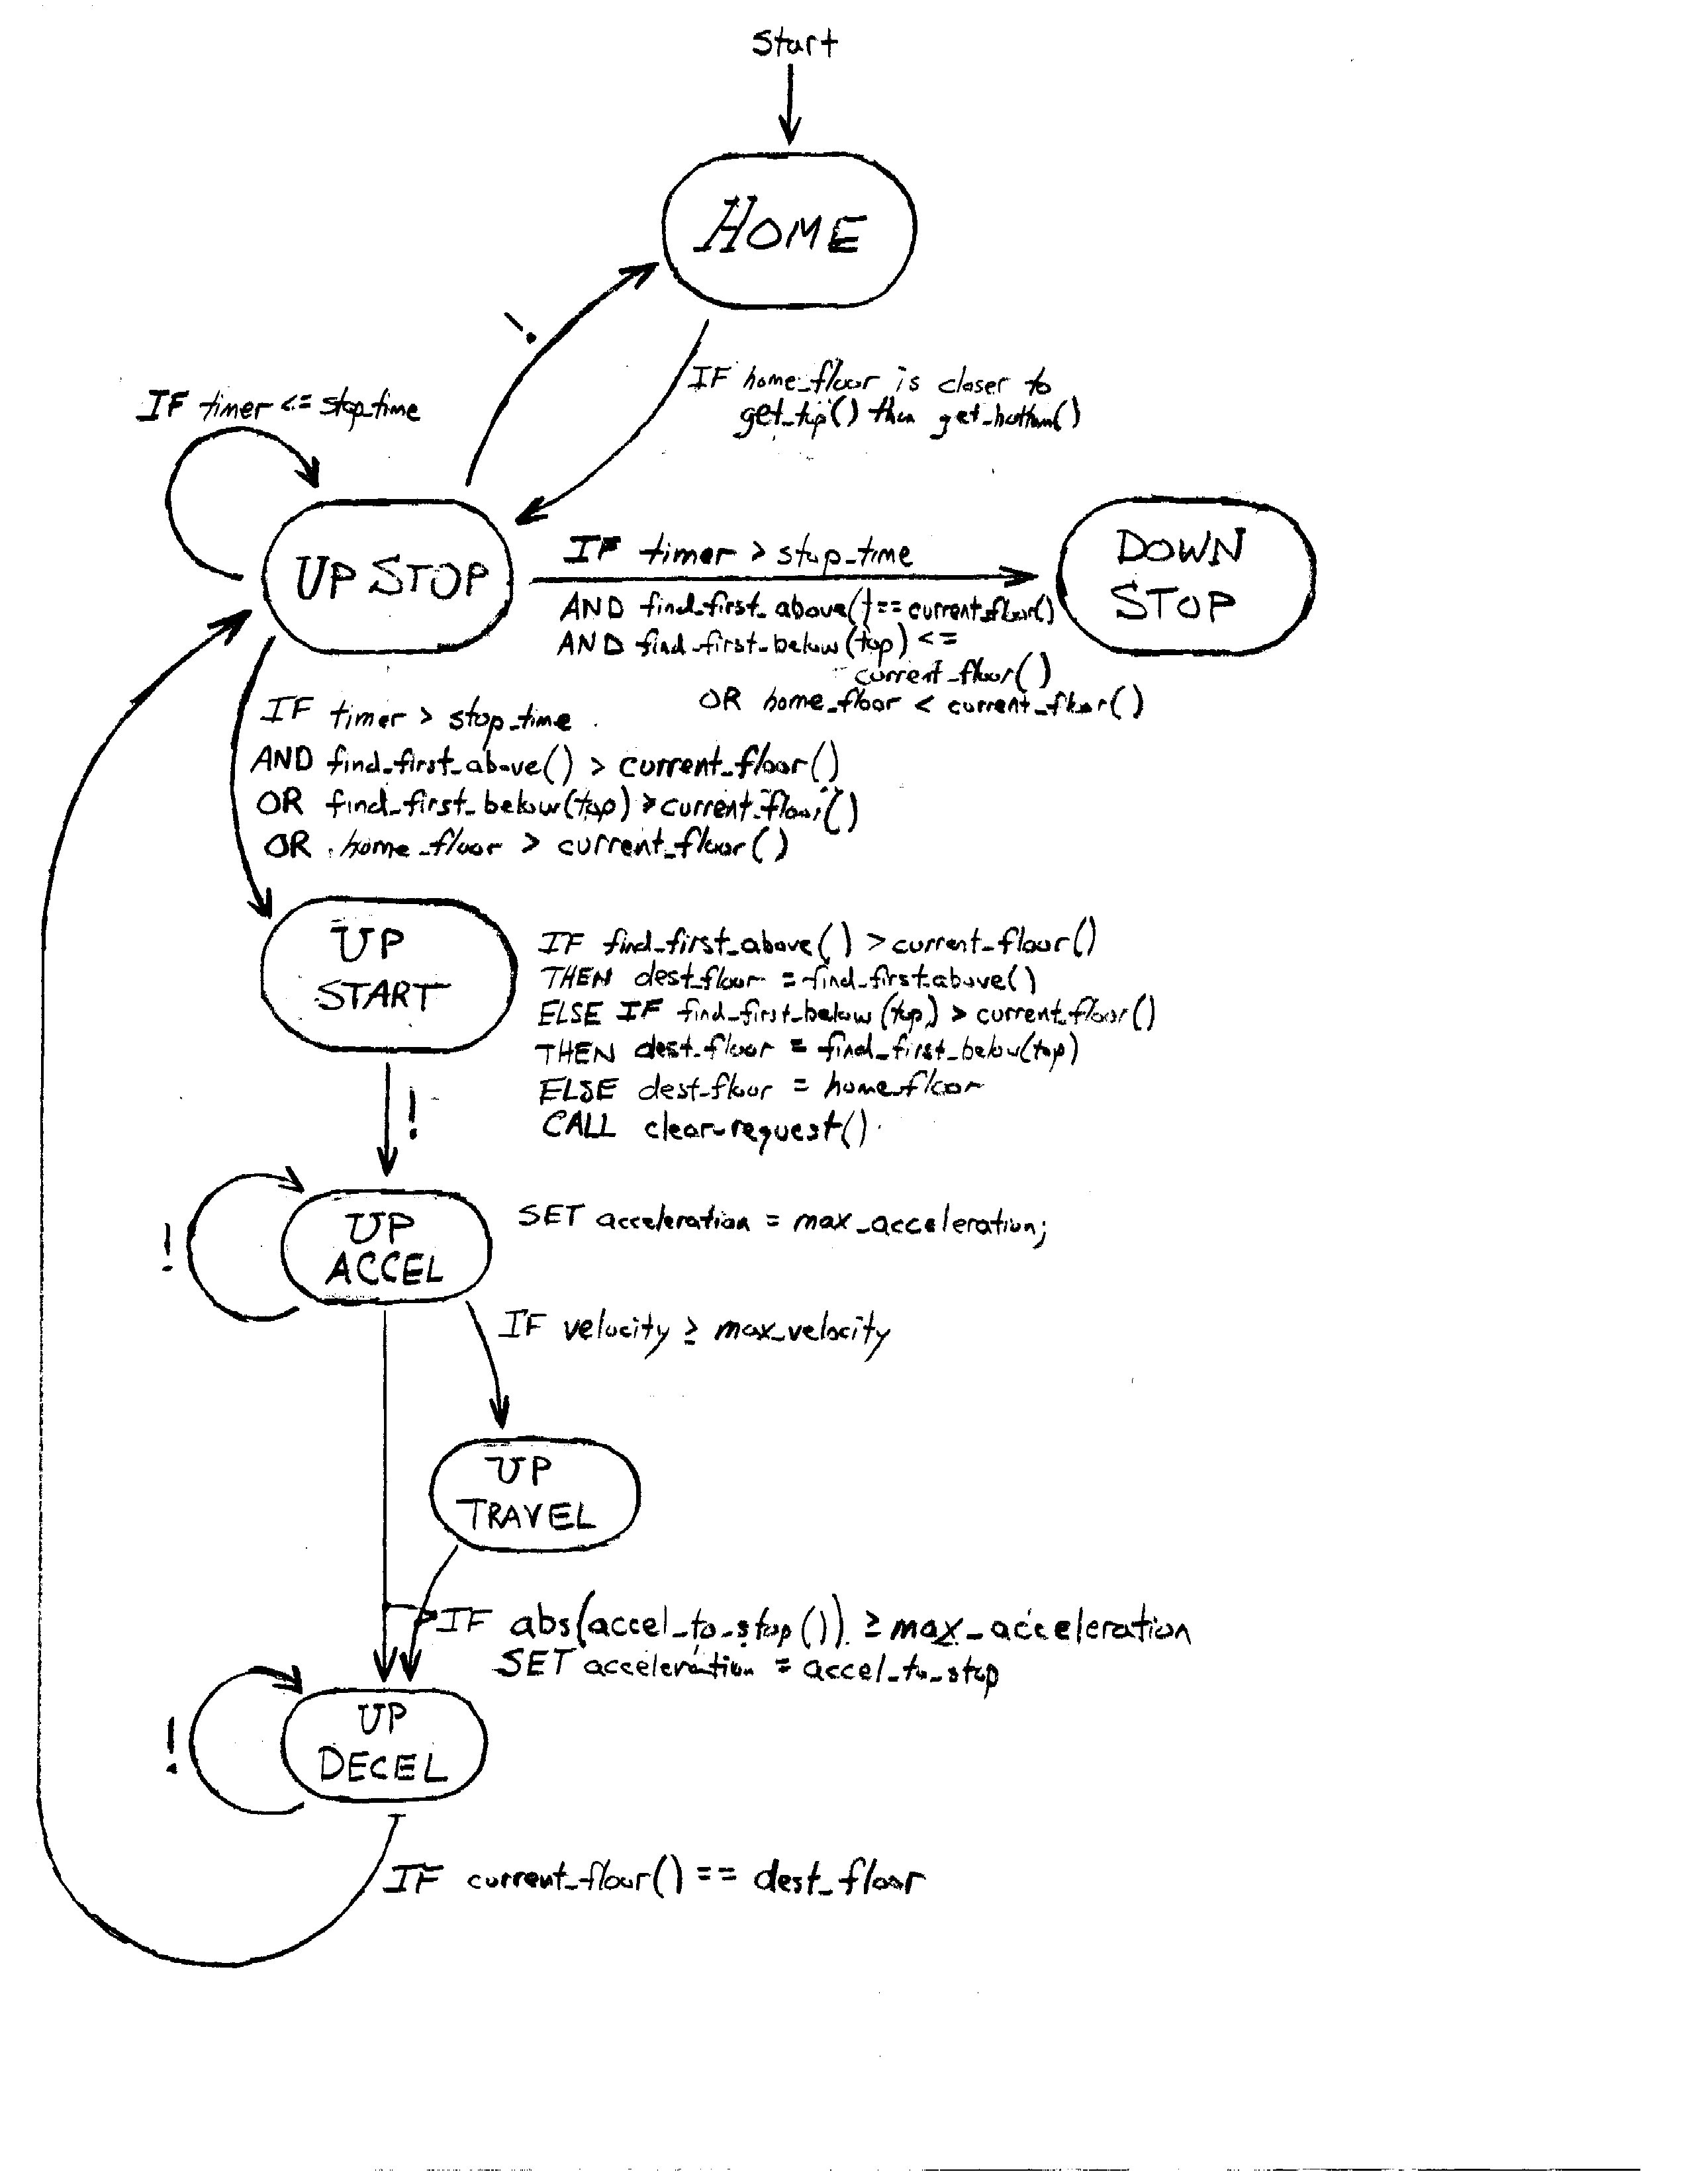 Start
HOME
!
IF home_floor is closer to
get_top() then get_bottom()
IF timer <= stop_time
UP STOP
IF timer > stop_time
AND find_first_above() == current_floor()
AND find_first_below(top) <=
current_floor()
OR home_floor < current_floor()
DOWN
STOP
IF timer > stop_time
AND find_first_above() > current_floor()
OR find_first_below(top) > current_floor()
OR home_floor > current_floor()
UP
START
IF find_first_above() > current_floor()
THEN dest_floor = find_first_above()
ELSE IF find_first_below(top) > current_floor()
THEN dest_floor = find_first_below(top)
ELSE dest_floor = home_floor
CALL clear_request()
!
!
UP
ACCEL
SET acceleration = max_acceleration;
IF velocity ≥ max_velocity
UP
TRAVEL
IF abs(accel_to_stop()) ≥ max_acceleration
SET acceleration = accel_to_stop
!
UP
DECEL
IF current_floor() == dest_floor